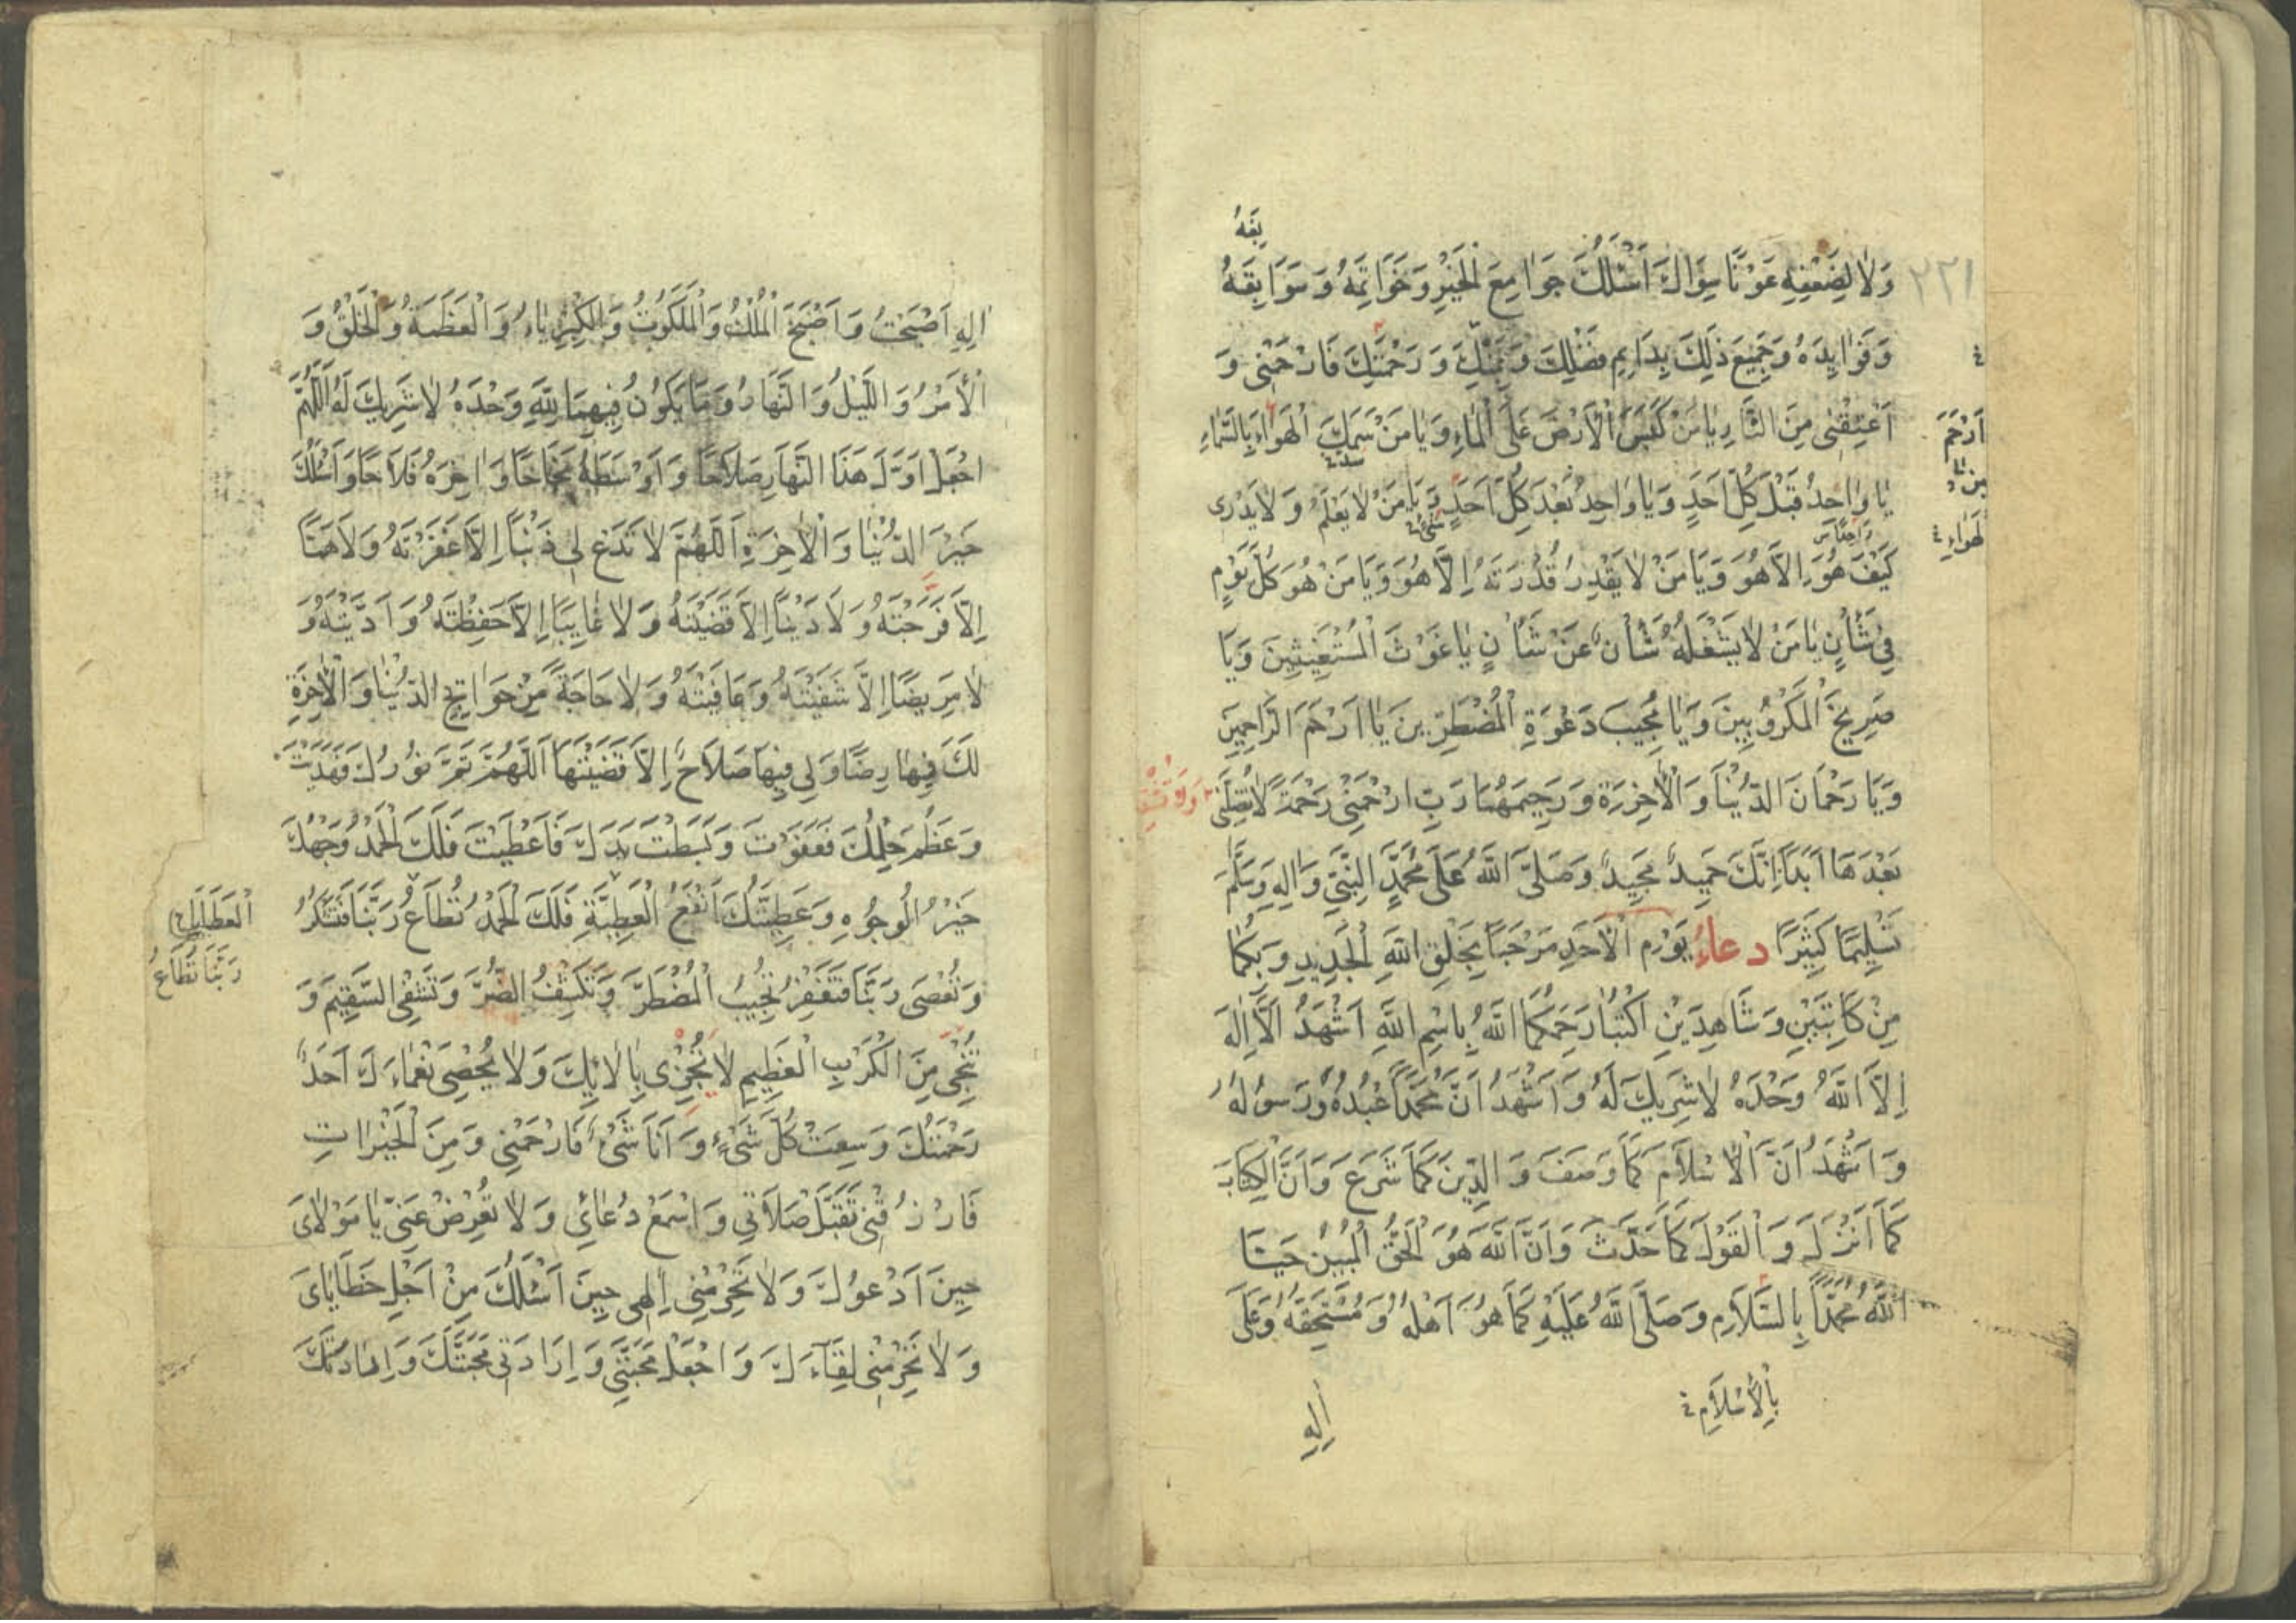 بقه
٢٢١
وَلَا لِضَعْفِهِ عَوْنًا سِوَاكَ اَسْئَلُكَ جَوَامِعَ الْخَيْرِ وَخَوَاتِمَهُ وَسَوَابِقَهُ
وَفَوَايِدَهُ وَجَمِيعَ ذٰلِكَ بِدَايِمِ فَضْلِكَ وَبِمَنِّكَ وَرَحْمَتِكَ فَارْحَمْنِى وَ
اَعْتِقْنِى مِنَ النَّارِ يَا مَنْ كَبَسَ الْاَرْضَ عَلَى الْمَاءِ وَيَا مَنْ سَمَكَ الْهَوَاءَ بِالسَّمَاءِ
اَرْحَمَ
يَا وَاحِدُ قَبْلَ كُلِّ اَحَدٍ وَيَا وَاحِدُ بَعْدَ كُلِّ اَحَدٍ وَيَا مَنْ لَا يَعْلَمُ وَلَا يَدْرِى
كَيْفَ هُوَ اِلَّا هُوَ وَيَا مَنْ لَا يَقْدِرُ قُدْرَتَهُ اِلَّا هُوَ وَيَا مَنْ هُوَ كُلَّ يَوْمٍ
فِى شَأْنٍ يَا مَنْ لَا يَشْغَلُهُ شَأْنٌ عَنْ شَأْنٍ يَا غَوْثَ الْمُسْتَغِيثِينَ وَيَا
صَرِيخَ الْمَكْرُوبِينَ وَيَا مُجِيبَ دَعْوَةِ الْمُضْطَرِّينَ يَا اَرْحَمَ الرَّاحِمِينَ
وَيَا رَحْمَانَ الدُّنْيَا وَالْاٰخِرَةِ وَرَحِيمَهُمَا رَبِّ ارْحَمْنِى رَحْمَةً لَا تُضِلَّنِى
بَعْدَهَا اَبَدًا اِنَّكَ حَمِيدٌ مَجِيدٌ وَصَلَّى اللّٰهُ عَلَى مُحَمَّدٍ النَّبِىِّ وَاٰلِهِ وَسَلَّمَ
تَسْلِيمًا كَثِيرًا دعاءُ يَوْمِ الْاَحَدِ مَرْحَبًا بِخَلْقِ اللّٰهِ الْجَدِيدِ وَبِكُمَا
مِنْ كَاتِبَيْنِ وَشَاهِدَيْنِ اُكْتُبَا رَحِمَكُمَا اللّٰهُ بِاسْمِ اللّٰهِ اَشْهَدُ اَلَّا اِلٰهَ
اِلَّا اللّٰهُ وَحْدَهُ لَا شَرِيكَ لَهُ وَاَشْهَدُ اَنَّ مُحَمَّدًا عَبْدُهُ وَرَسُولُهُ
وَاَشْهَدُ اَنَّ الْاِسْلَامَ كَمَا وَصَفَ وَالدِّينَ كَمَا شَرَعَ وَاَنَّ الْكِتَابَ
كَمَا اَنْزَلَ وَالْقَوْلَ كَمَا حَدَّثَ وَاَنَّ اللّٰهَ هُوَ الْحَقُّ الْمُبِينُ حَيَّا
اللّٰهُ مُحَمَّدًا بِالسَّلَامِ وَصَلَّى اللّٰهُ عَلَيْهِ كَمَا هُوَ اَهْلُهُ وَمُسْتَحِقُّهُ وَعَلَى
بِالْاِسْلَامِ
اٰلِهِ
اٰلِهِ اَصْبَحْتُ وَاَصْبَحَ الْمُلْكُ وَالْمَلَكُوتُ وَالْكِبْرِيَاءُ وَالْعَظَمَةُ وَالْخَلْقُ وَ
الْاَمْرُ وَاللَّيْلُ وَالنَّهَارُ وَمَا يَكُونُ فِيهِمَا لِلّٰهِ وَحْدَهُ لَا شَرِيكَ لَهُ اَللّٰهُمَّ
اجْعَلْ اَوَّلَ هَذَا النَّهَارِ صَلَاحًا وَاَوْسَطَهُ نَجَاحًا وَاٰخِرَهُ فَلَاحًا وَاَسْئَلُكَ
خَيْرَ الدُّنْيَا وَالْاٰخِرَةِ اَللّٰهُمَّ لَا تَدَعْ لِى ذَنْبًا اِلَّا غَفَرْتَهُ وَلَا هَمًّا
اِلَّا فَرَّجْتَهُ وَلَا دَيْنًا اِلَّا قَضَيْتَهُ وَلَا غَايِبًا اِلَّا حَفِظْتَهُ وَاَدَّيْتَهُ وَ
لَا مَرِيضًا اِلَّا شَفَيْتَهُ وَعَافَيْتَهُ وَلَا حَاجَةً مِنْ حَوَايِجِ الدُّنْيَا وَالْاٰخِرَةِ
لَكَ فِيهَا رِضًا وَلِى فِيهَا صَلَاحٌ اِلَّا قَضَيْتَهَا اَللّٰهُمَّ تَمَّ نُورُكَ فَهَدَيْتَ
وَعَظُمَ حِلْمُكَ فَعَفَوْتَ وَبَسَطْتَ يَدَكَ فَاَعْطَيْتَ فَلَكَ الْحَمْدُ وَجْهُكَ
خَيْرُ الْوُجُوهِ وَعَطِيَّتُكَ اَنْفَعُ الْعَطِيَّةِ فَلَكَ الْحَمْدُ تُطَاعُ رَبَّنَا فَتَشْكُرُ
رَبَّنَا تُطَاعُ
وَتُعْصَى رَبَّنَا فَتَغْفِرُ تُجِيبُ الْمُضْطَرَّ وَتَكْشِفُ الضُّرَّ وَتَشْفِى السَّقِيمَ وَ
تُنْجِى مِنَ الْكَرْبِ الْعَظِيمِ لَا يُجْزٰى بِاٰلَائِكَ وَلَا يُحْصِى نَعْمَاءَكَ اَحَدٌ
رَحْمَتُكَ وَسِعَتْ كُلَّ شَىْءٍ وَاَنَا شَىْءٌ فَارْحَمْنِى وَمِنَ الْخَيْرَاتِ
فَارْزُقْنِى تَقَبَّلْ صَلَاتِى وَاسْمَعْ دُعَائِى وَلَا تُعْرِضْ عَنِّى يَا مَوْلَاىَ
حِينَ اَدْعُوكَ وَلَا تَحْرِمْنِى اِلٰهِى حِينَ اَسْئَلُكَ مِنْ اَجْلِ خَطَايَاىَ
وَلَا تَحْرِمْنِى لِقَاءَكَ وَاجْعَلْ مَحَبَّتِى وَاِرَادَتِى مَحَبَّتَكَ وَاِرَادَتَكَ